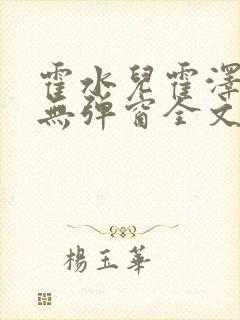 霍水兒霍澤
無彈窗全文
楊玉華